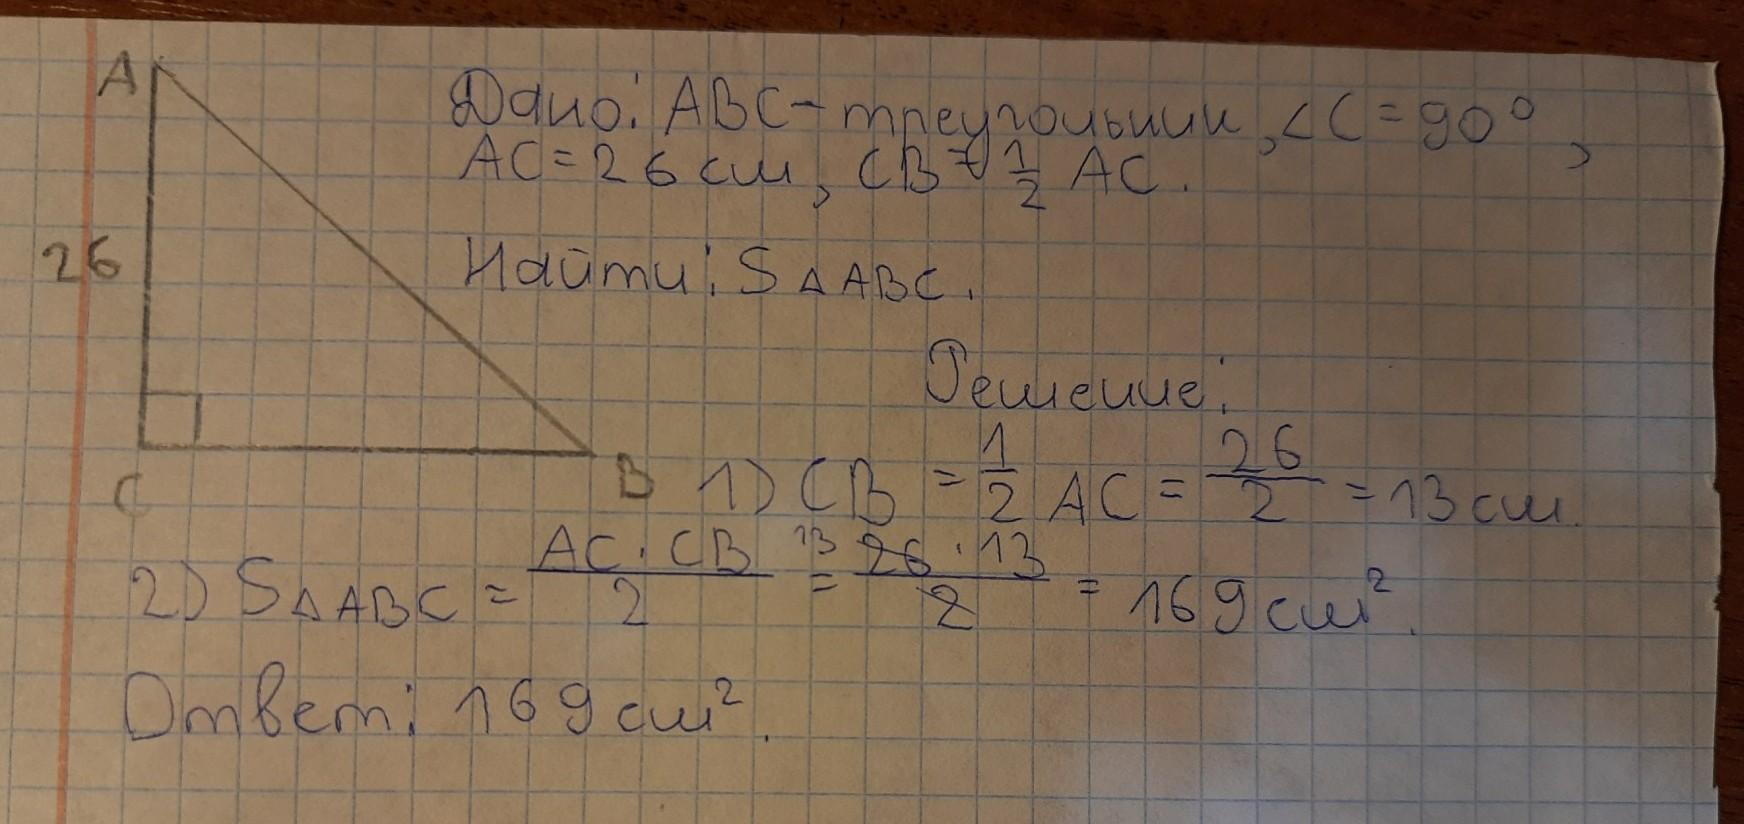 A
Дано: ABC - треугольник, ∠C = 90°,
AC = 26 см, CB = 1/2 AC.
26
Найти: S△ABC.
Решение:
C
B
1) CB = 1/2 AC = 26/2 = 13 см.
2) S△ABC = AC · CB / 2 = 13 26 · 13 / 2 = 169 см².
Ответ: 169 см².